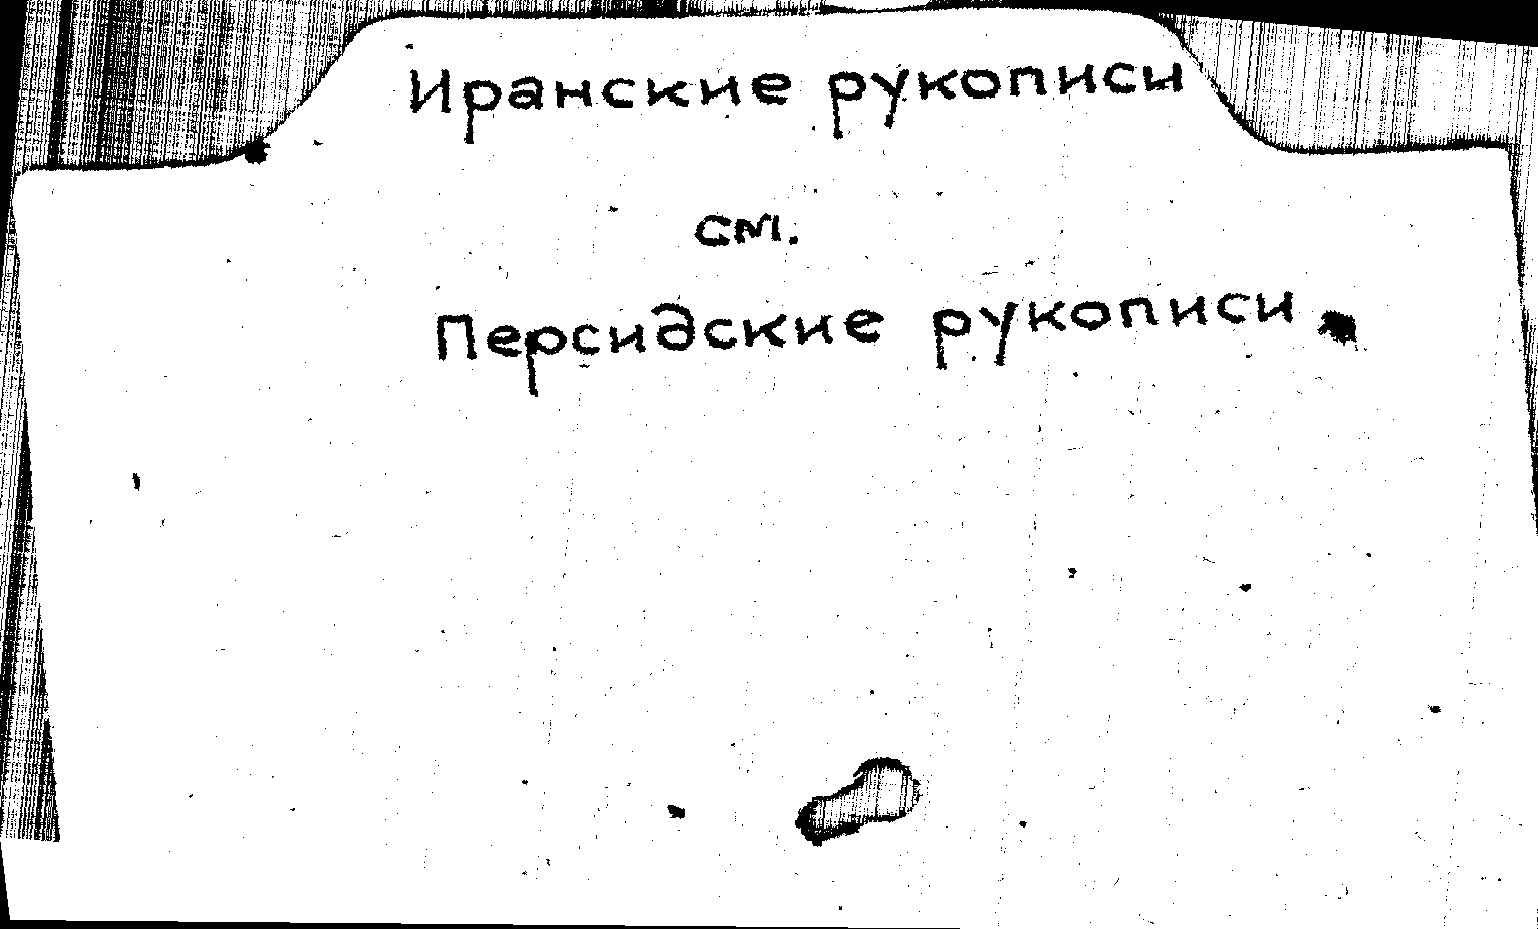 Иранские рукописи
см.
Персидские рукописи